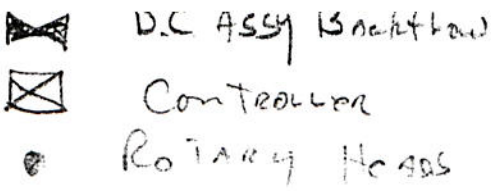 D.C ASSY Backflow
CONTROLLER
ROTARY HEADS